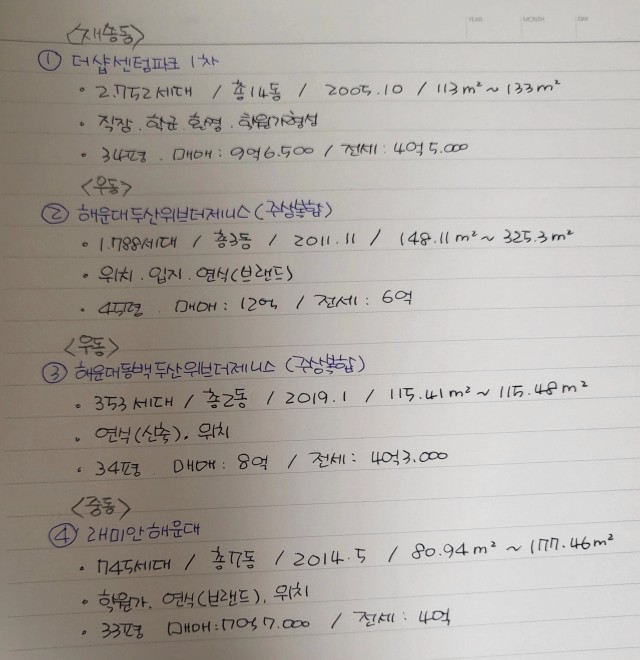 YEAR MONTH DAY
<재송동>
① 더샵센텀파크 1차
• 2.752세대 / 총14동 / 2005.10 / 113m² ~ 133m²
• 직장. 학군. 환경. 학원가형성
• 34평. 매매: 9억6.500 / 전세: 4억5.000
<우동>
② 해운대두산위브더제니스 (주상복합)
• 1.788세대 / 총3동 / 2011.11 / 148.11m² ~ 325.3m²
• 위치. 입지. 연식(브랜드)
• 45평. 매매: 12억 / 전세: 6억
<우동>
③ 해운대동백두산위브더제니스 (주상복합)
• 353세대 / 총2동 / 2019.1 / 115.41m² ~ 115.48m²
• 연식(신축). 위치
• 34평 매매: 8억 / 전세: 4억3.000
<중동>
④ 래미안해운대
• 745세대 / 총7동 / 2014.5 / 80.94m² ~ 177.46m²
• 학원가. 연식(브랜드). 위치
• 33평 매매:7억7.000 / 전세: 4억